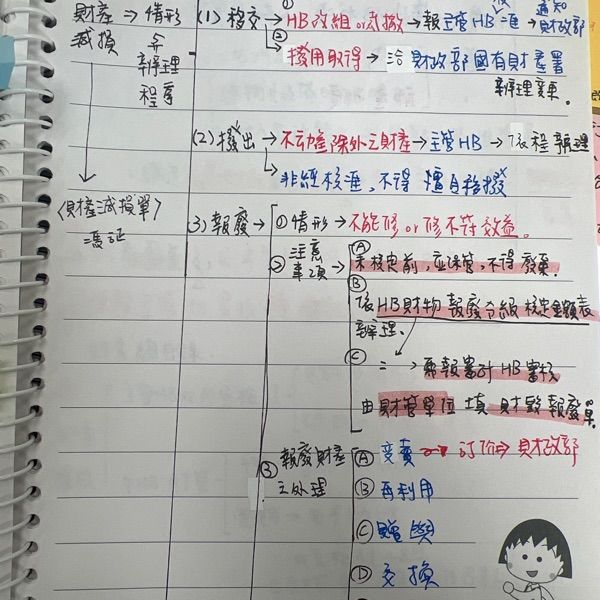 財產⇒情形
減損 與
辦理
程序
(1) 移交→①HB改組 or 裁撤→報主管HB准→通知財政部
②撥用取得→洽財政部國有財產署
辦理變更。
(2) 撥出→不動產除外之財產→主管HB→依程辦理
非經核准,不得擅自移撥
〈財產減損單〉
憑証
3) 報廢→①情形→不能修 or 修不符效益。
②注意事項→Ⓐ未核定前,應保管,不得廢棄。
Ⓑ依HB財物報廢分級核定金額表
辦理。
Ⓒ 〃 → 需報審計HB審核
由財管單位填財物報廢單。
③報廢財產
之處理
Ⓐ變賣→訂价⇒財政部
Ⓑ再利用
Ⓒ贈與
Ⓓ交換